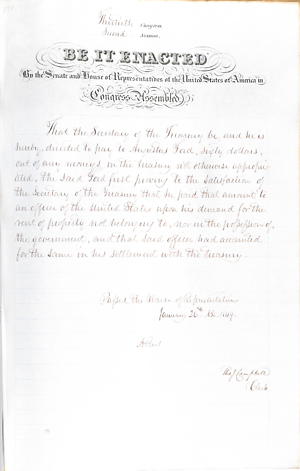 Thirtieth Congress
Second Session.
BE IT ENACTED
By the Senate and House of Representatives of the United States of America in
Congress Assembled
That the Secretary of the Treasury be and he is
hereby directed to pay to Augustus Ford, sixty dollars,
out of any money in the Treasury not otherwise appropri-
ated, the said Ford first proving to the satisfaction of
the Secretary of the Treasury that he paid that amount to
an officer of the United States upon his demand for the
rent of property not belonging to, nor in the possession of
the government, and that said officer had accounted
for the same in his settlement with the Treasury.
Passed the House of Representatives
January 26th 1849.
Attest
Campbell
Clerk